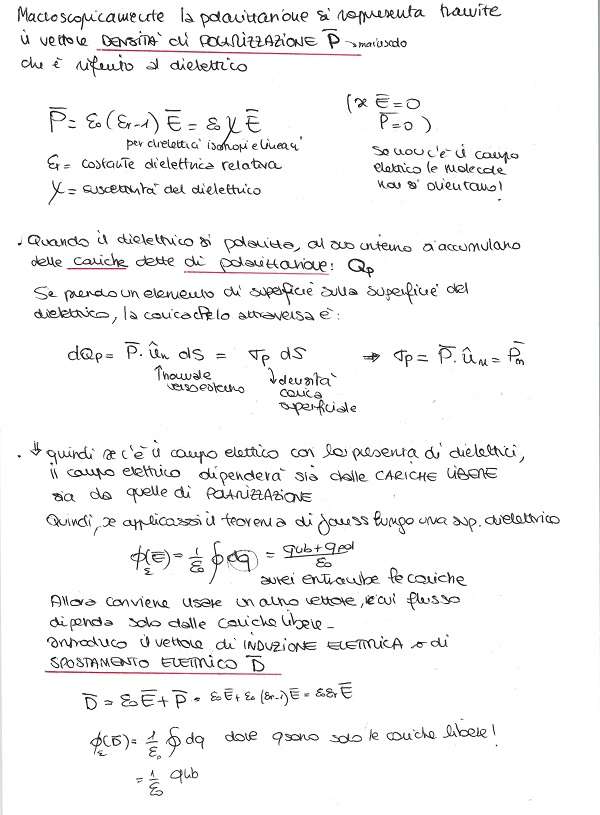 Macroscopicamente la polarizzazione si rappresenta tramite
il vettore DENSITÀ di POLARIZZAZIONE P̅ → maiuscolo
che è riferito al dielettrico
P̅ = ε₀(εᵣ-1) E̅ = ε₀ χ E̅
(se E̅ = 0
P̅ = 0 )
per dielettrici isotropi e lineari
εᵣ = costante dielettrica relativa
χ = suscettività del dielettrico
Se non c'è il campo
elettrico le molecole
non si orientano!
. Quando il dielettrico si polarizza, al suo interno si accumulano
delle cariche dette di polarizzazione: Qp
Se prendo un elemento di superficie sulla superficie del
dielettrico, la carica che lo attraversa è:
dQp = P̅ · ûn dS = σp dS ⇒ σp = P̅ · ûn = Pn
↑ normale
verso esterno
↓ densità
carica
superficiale
. ↓ quindi se c'è il campo elettrico con la presenza di dielettrici,
il campo elettrico dipenderà sia dalle CARICHE LIBERE
sia da quelle di POLARIZZAZIONE
Quindi, se applicassi il teorema di Gauss lungo una sup. dielettrico
ϕ(E̅) = 1/ε₀ ∮ dq = qlib + qpol / ε₀
Σ
avrei entrambe le cariche
Allora conviene usare un altro vettore, il cui flusso
dipenda solo dalle cariche libere -
introduco il vettore di INDUZIONE ELETTRICA o di
SPOSTAMENTO ELETTRICO D̅
D̅ = ε₀E̅ + P̅ = ε₀E̅ + ε₀(εᵣ-1)E̅ = ε₀εᵣE̅
ϕ(D̅) = 1/ε₀ ∮ dq dove q sono solo le cariche libere!
Σ
= 1/ε₀ qlib